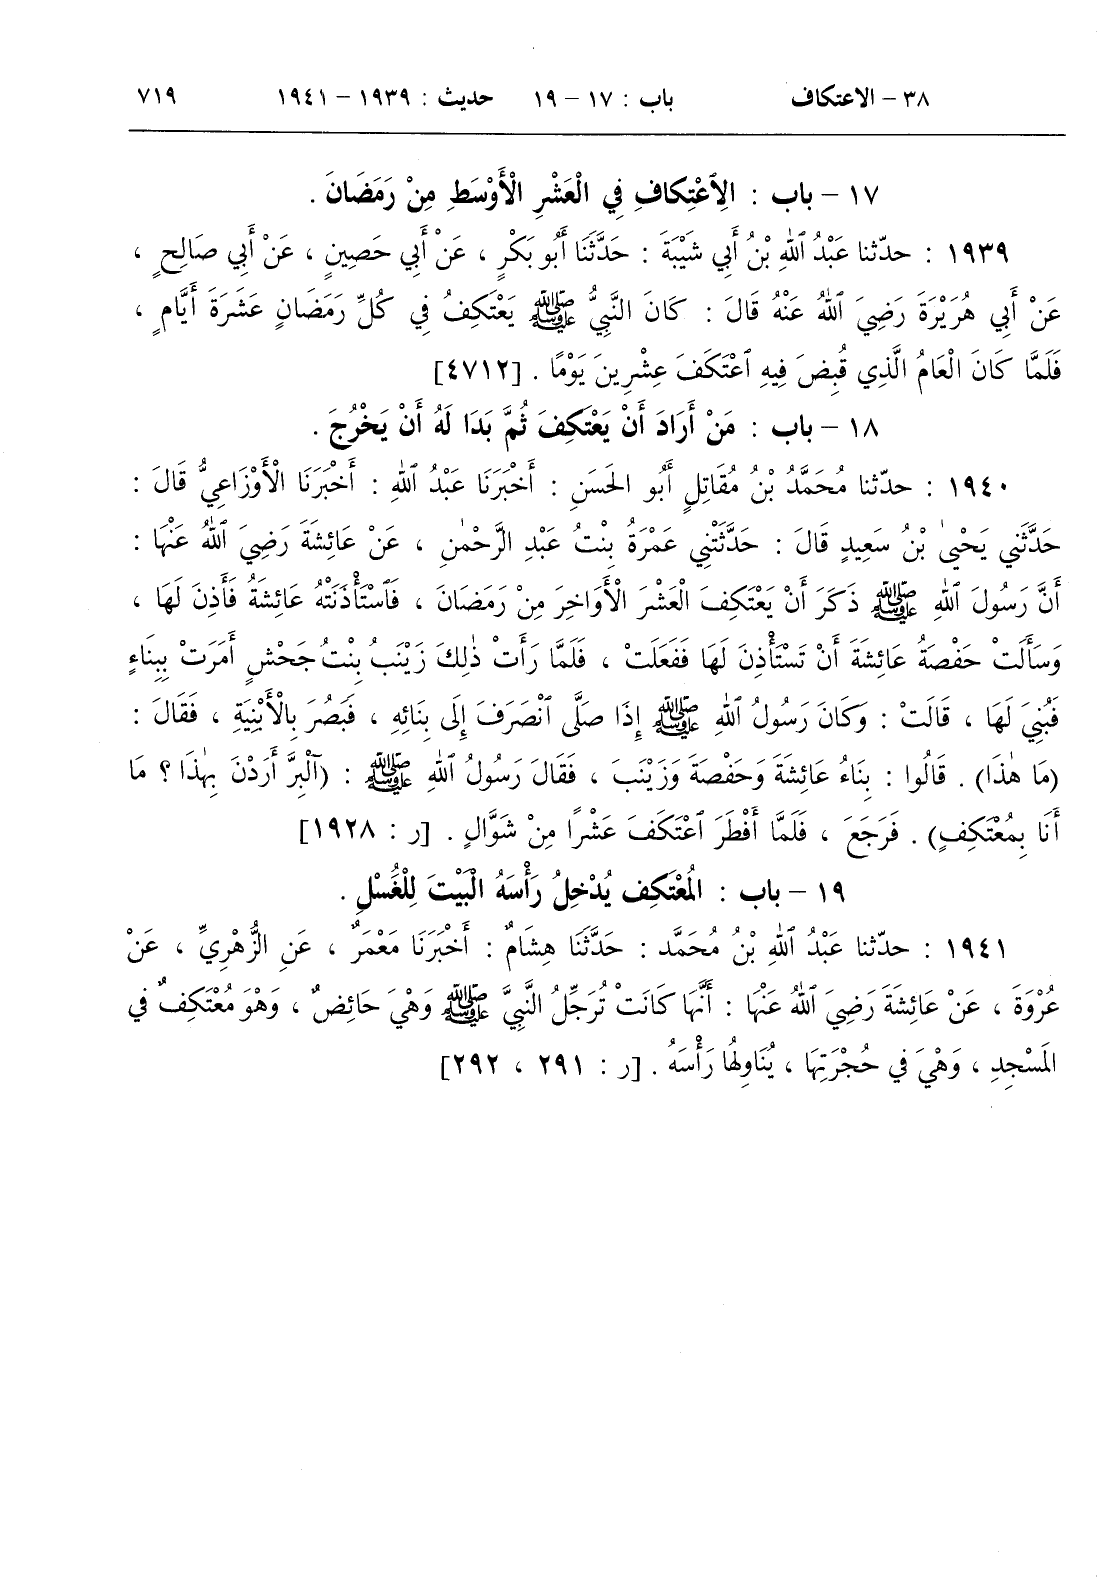 ٣٨ – الاعتكاف باب : ١٧ – ١٩ حديث : ١٩٣٩ – ١٩٤١ ٧١٩
١٧ – باب : الِٱعْتِكافِ فِي الْعَشْرِ الْأَوْسَطِ مِنْ رَمَضَانَ .
١٩٣٩ : حدّثنا عَبْدُ ٱللهِ بْنُ أَبِي شَيْبَةَ : حَدَّثَنَا أَبُو بَكْرٍ ، عَنْ أَبِي حَصِينٍ ، عَنْ أَبِي صَالِحٍ ،
عَنْ أَبِي هُرَيْرَةَ رَضِيَ ٱللهُ عَنْهُ قَالَ : كَانَ النَّبِيُّ ﷺ يَعْتَكِفُ فِي كُلِّ رَمَضَانٍ عَشَرَةَ أَيَّامٍ ،
فَلَمَّا كَانَ الْعَامُ الَّذِي قُبِضَ فِيهِ ٱعْتَكَفَ عِشْرِينَ يَوْمًا . [٤٧١٢]
١٨ – باب : مَنْ أَرَادَ أَنْ يَعْتَكِفَ ثُمَّ بَدَا لَهُ أَنْ يَخْرُجَ .
١٩٤٠ : حدّثنا مُحَمَّدُ بْنُ مُقَاتِلٍ أَبُو الحَسَنِ : أَخْبَرَنَا عَبْدُ ٱللهِ : أَخْبَرَنَا الْأَوْزَاعِيُّ قَالَ :
حَدَّثَنِي يَحْيىٰ بْنُ سَعِيدٍ قَالَ : حَدَّثَتْنِي عَمْرَةُ بِنْتُ عَبْدِ الرَّحْمٰنِ ، عَنْ عَائِشَةَ رَضِيَ ٱللهُ عَنْهَا :
أَنَّ رَسُولَ ٱللهِ ﷺ ذَكَرَ أَنْ يَعْتَكِفَ الْعَشْرَ الْأَوَاخِرَ مِنْ رَمَضَانَ ، فَٱسْتَأْذَنَتْهُ عَائِشَةُ فَأَذِنَ لَهَا ،
وَسَأَلَتْ حَفْصَةُ عَائِشَةَ أَنْ تَسْتَأْذِنَ لَهَا فَفَعَلَتْ ، فَلَمَّا رَأَتْ ذٰلِكَ زَيْنَبُ بِنْتُ جَحْشٍ أَمَرَتْ بِبِنَاءٍ
فَبُنِيَ لَهَا ، قَالَتْ : وَكَانَ رَسُولُ ٱللهِ ﷺ إِذَا صَلَّى ٱنْصَرَفَ إِلَى بِنَائِهِ ، فَبَصُرَ بِالْأَبْنِيَةِ ، فَقَالَ :
(مَا هٰذَا) . قَالُوا : بِنَاءُ عَائِشَةَ وَحَفْصَةَ وَزَيْنَبَ ، فَقَالَ رَسُولُ ٱللهِ ﷺ : (آلْبِرَّ أَرَدْنَ بِهٰذَا ؟ مَا
أَنَا بِمُعْتَكِفٍ) . فَرَجَعَ ، فَلَمَّا أَفْطَرَ ٱعْتَكَفَ عَشْرًا مِنْ شَوَّالٍ . [ر : ١٩٢٨]
١٩ – باب : الْمُعْتَكِف يُدْخِلُ رَأْسَهُ الْبَيْتَ لِلْغُسْلِ .
١٩٤١ : حدّثنا عَبْدُ ٱللهِ بْنُ مُحَمَّد : حَدَّثَنَا هِشَامٌ : أَخْبَرَنَا مَعْمَرٌ ، عَنِ الزُّهْرِيِّ ، عَنْ
عُرْوَةَ ، عَنْ عَائِشَةَ رَضِيَ ٱللهُ عَنْهَا : أَنَّهَا كَانَتْ تُرَجِّلُ النَّبِيَّ ﷺ وَهْيَ حَائِضٌ ، وَهْوَ مُعْتَكِفٌ فِي
المَسْجِدِ ، وَهْيَ فِي حُجْرَتِهَا ، يُنَاوِلُهَا رَأْسَهُ . [ر : ٢٩١ ، ٢٩٢]